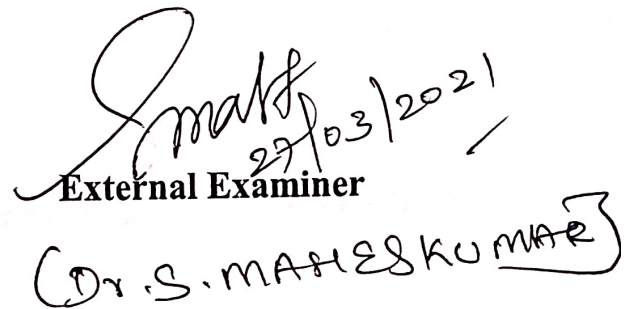 27/03/2021
External Examiner
(Dr. S. MAHESKUMAR)